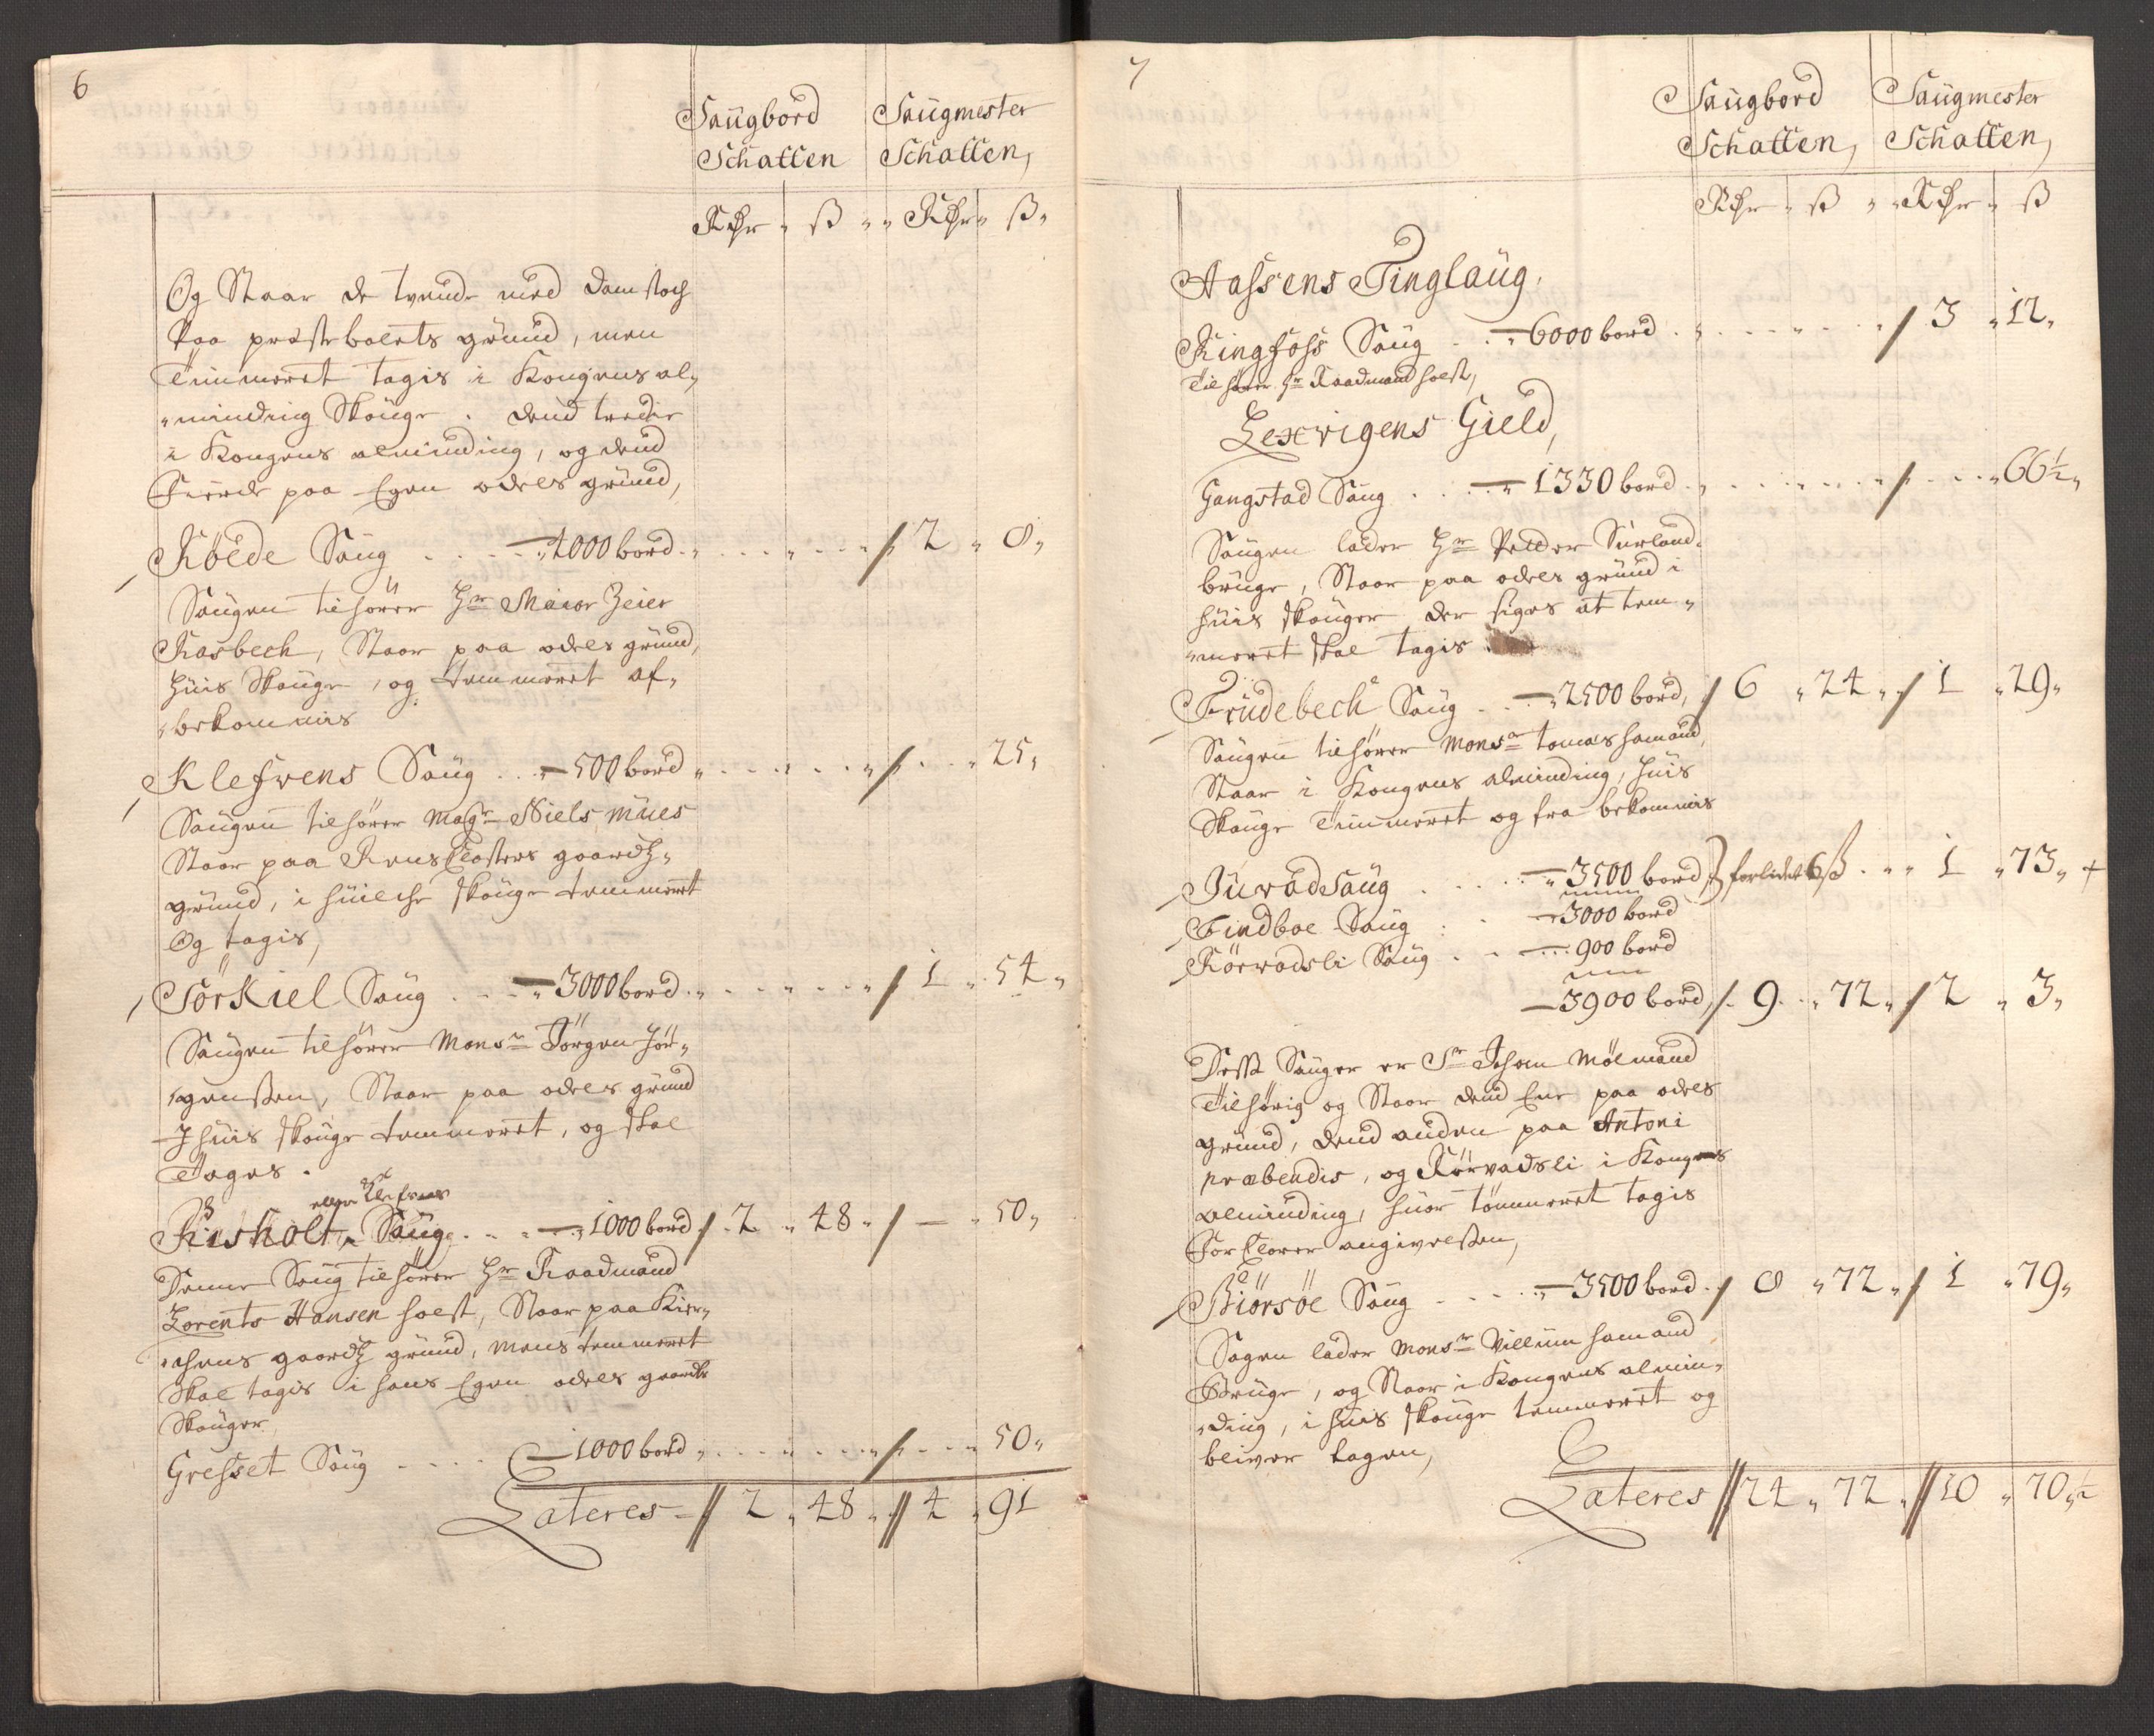 6
Saugbord Saugmester
Schatten Schatten,
Rdr ß Rdr ß
Og Staar de tvende med Damstoch
Paa præsteboelets grund, men
Timmeret tagis i Kongens al,,
,,minding Skouge. dend tredie
i Kongens alminding, og dend
Fierde paa Egen odels grund,
Röede Saug 4000 bord 2 0
Saugen tilhörer Hr Maior Zeier
Rasbech, Staar paa odels grund,
huis Skouge, og temmeret af,,
,,bekommis
Klefwens Saug 500 bord 25
Saugen tilhörer Magr Niels Mues
Staar paa Rens Closters gaardtz
grund, i huilche skouge temmeret
Og tagis,
Törkiel Saug 3000 bord 1 54
Saugen tilhörer Monsr Törgen Jör,,
,,genßen, Staar paa odels grund
I huis skouge temmeret, og skal
Tages.
eller Klefwens
Risholt Saug 1000 bord 2 48 — 50
Denne Saug tilhörer Hr Raadmand
Lorents Hansen holst, Staar paa Kier,,
,,chens gaardtz grund, mens temmeret
skal tagis i hans Egen odels gaards
Skouger
Gresset Saug 1000 bord 50
Lateres 2 48 4 91
7
Saugbord Saugmester
Schatten, Schatten,
Rdr ß Rdr ß
Aassens Tinglaug,
Ringfoss Saug 6000 bord 3 12
Tilhörer Hr Raadmand holst,
Lexvigens Gield,
Gangstad Saug 1330 bord 66½
Saugen lader Hr Petter Surland
bruge, Staar paa odels grund i
huis skouger der siges at tem,,
,,meret skal tagis
Frudebech Saug 2500 bord 6 24 1 29
Saugen tilhörer Monsr tomas hamand
Staar i Kongens alminding, huis
Skouge Timmeret og fra bekommis
Juvadsaug 3500 bord forlidet 6ß 1 73 +
Findboe Saug 3000 bord
Rörvadsli Saug 900 bord
3900 bord 9 72 2 3
Disse Sauger er Sr Johan Mölmand
Tilhörig og Staar dend Ene paa odels
grund, dend anden paa Antoni
præbendis, og Rörvadsli i Kongens
alminding, huor tömmeret tagis
For Clarer angivelsen,
Biörsöe Saug 3500 bord 8 72 1 79
Sagen lader Monsr Villum hamand
Bruge, og Staar i Kongens almin,,
,,ding, i huis skouge temmeret og
bliver tagen,
Lateres 24 72 10 70½